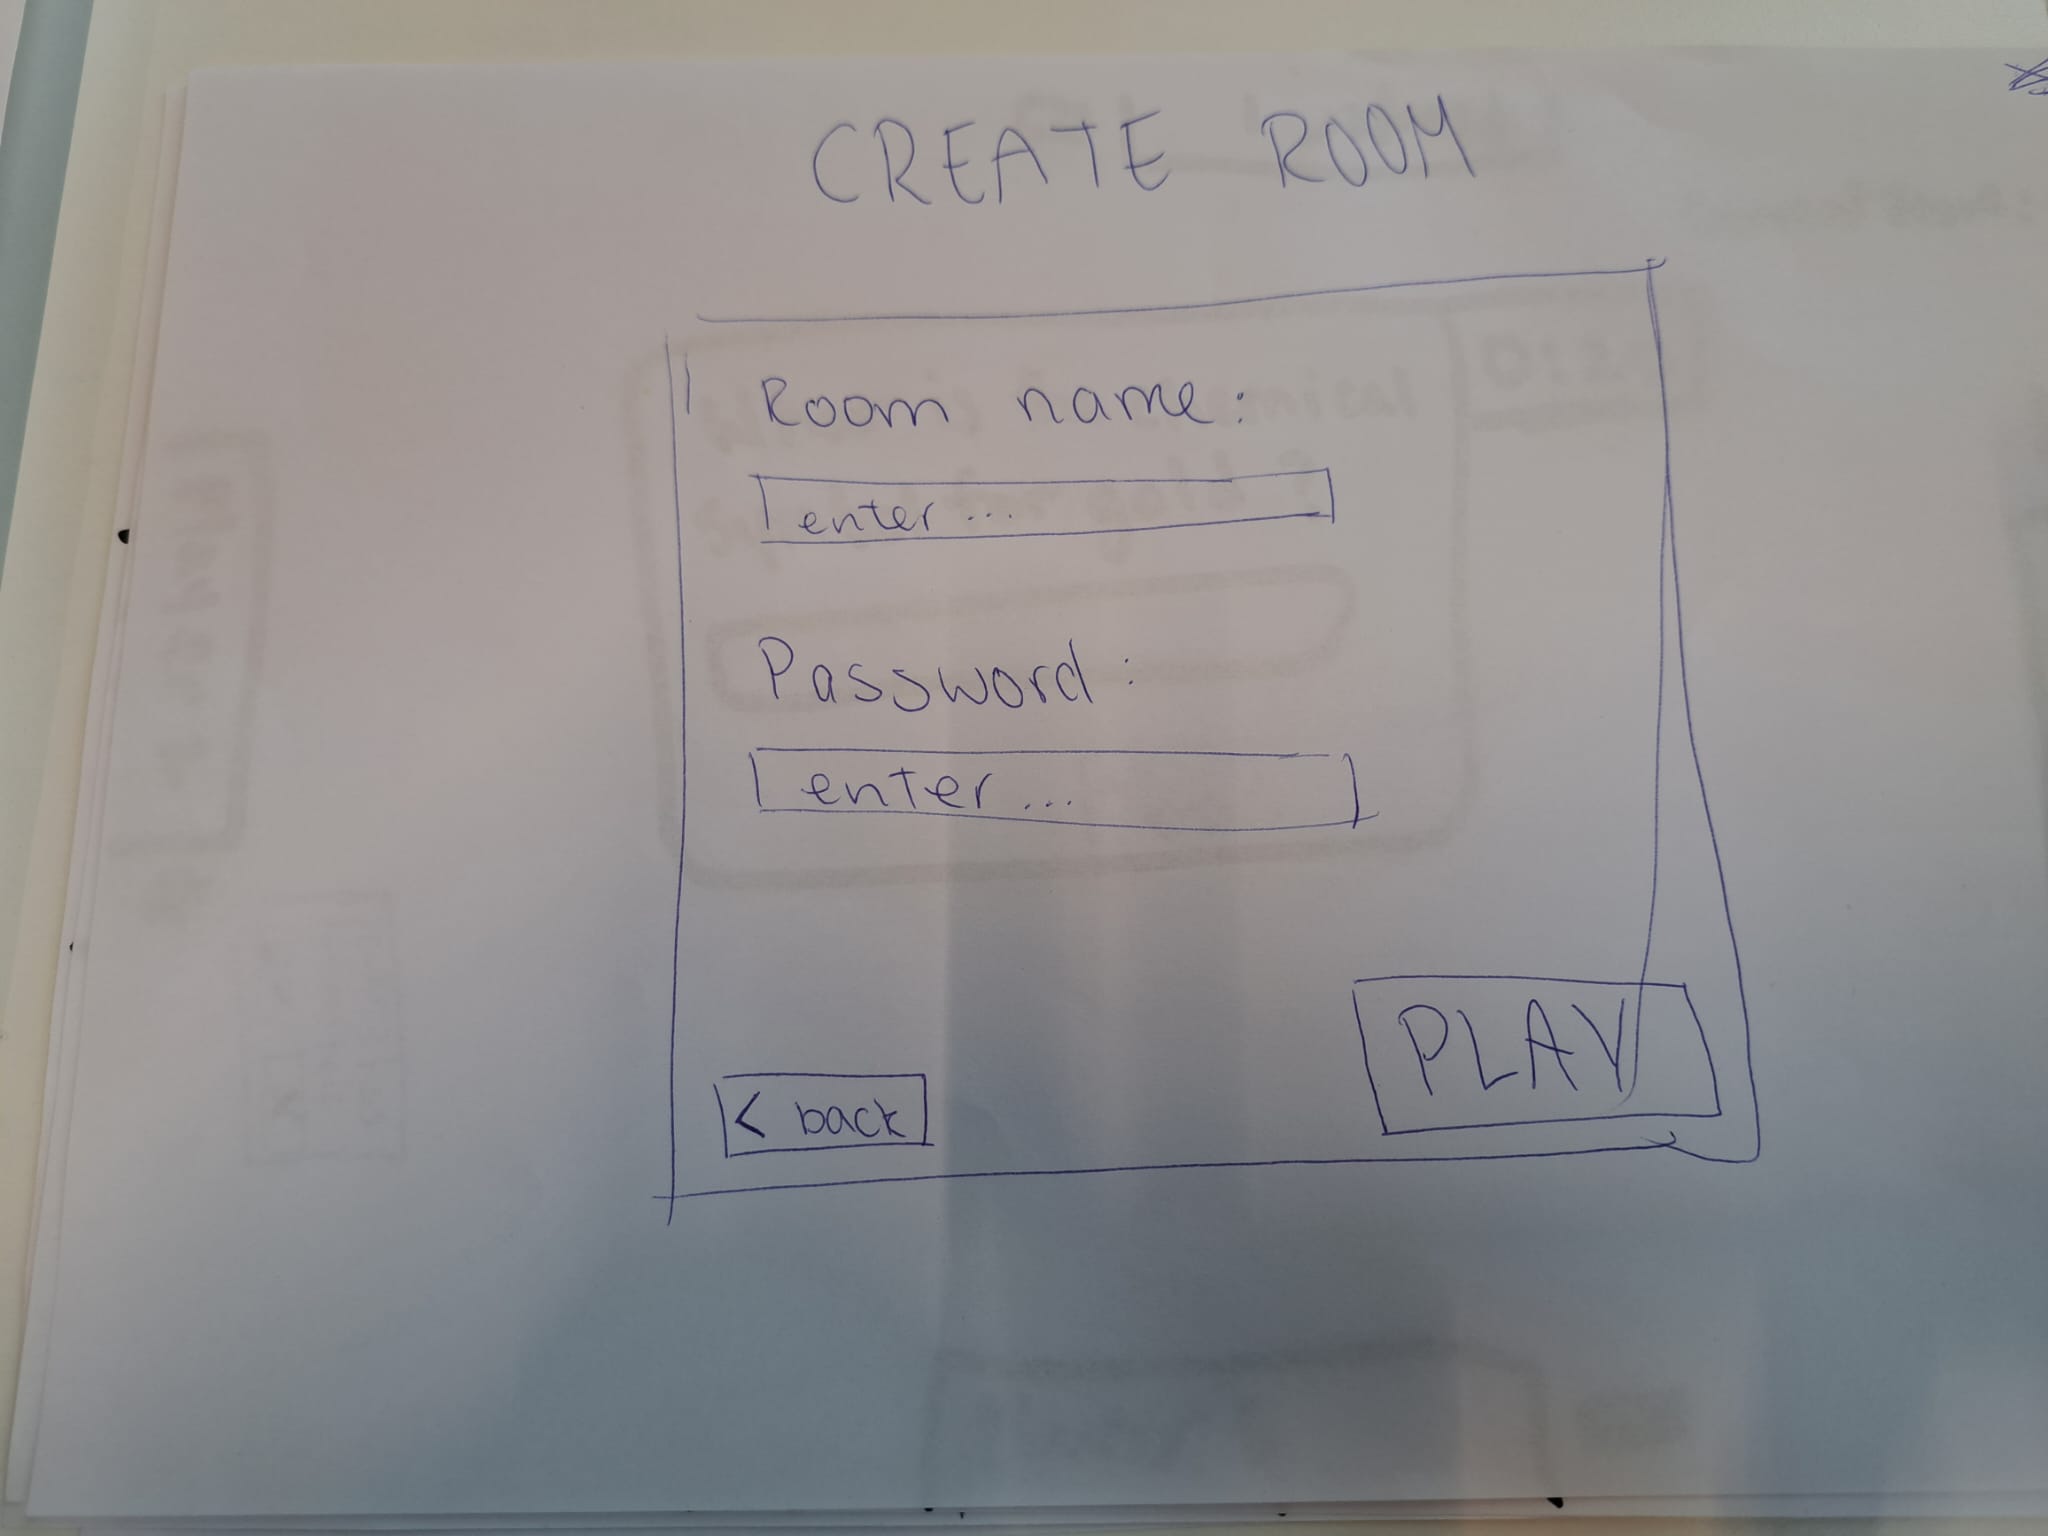 CREATE ROOM
Room name:
enter...
Password:
enter...
< back
PLAY